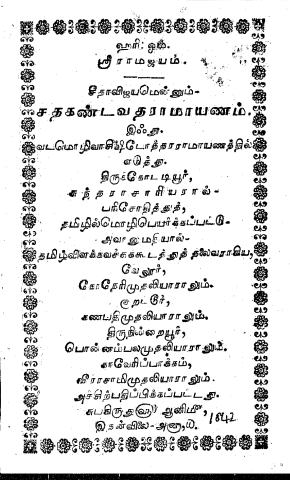 ஹரி: ஓம்.
ஸ்ரீராமஜயம்.
சீதாவிஜயமென்னும்-
சதகண்டவதராமாயணம்.
இஃது
வடமொழிவாசிஷ்டோத்தரராமாயணத்தில்
எடுத்து
திருக்கோட்டியூர்,
சுந்தராசாரியரால்-
பரிசோதித்துத்,
தமிழில்மொழிபெயர்க்கப்பட்டு-
அவரனுமதியால்-
தமிழ்விளக்கவச்சுக்கூடத்துத் தலைவராகிய,
வேலூர்,
கோதேரிமுதலியாராலும்.
குறட்டூர்,
கணபதிமுதலியாராலும்.
திருநின்றையூர்,
பொன்னப்பலமுதலியாராலும்.
காவேரிப்பாக்கம்,
வீராசாமிமுதலியாராலும்.
அச்சிற்பதிப்பிக்கப்பட்டது.
சுபகிருதுவருஷ ஆனிமீ,
இதன்விலை-அணா,
1842